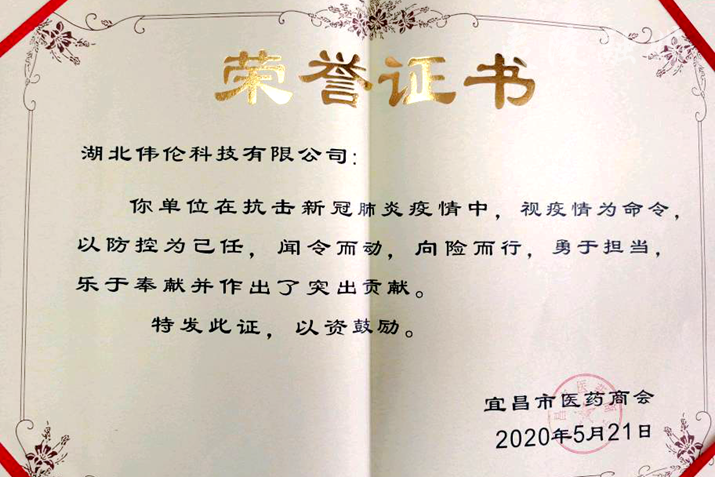 荣誉证书
湖北伟伦科技有限公司：
你单位在抗击新冠肺炎疫情中，视疫情为命令，
以防控为己任，闻令而动，向险而行，勇于担当，
乐于奉献并作出了突出贡献。
特发此证，以资鼓励。
宜昌市医药商会
2020年5月21日